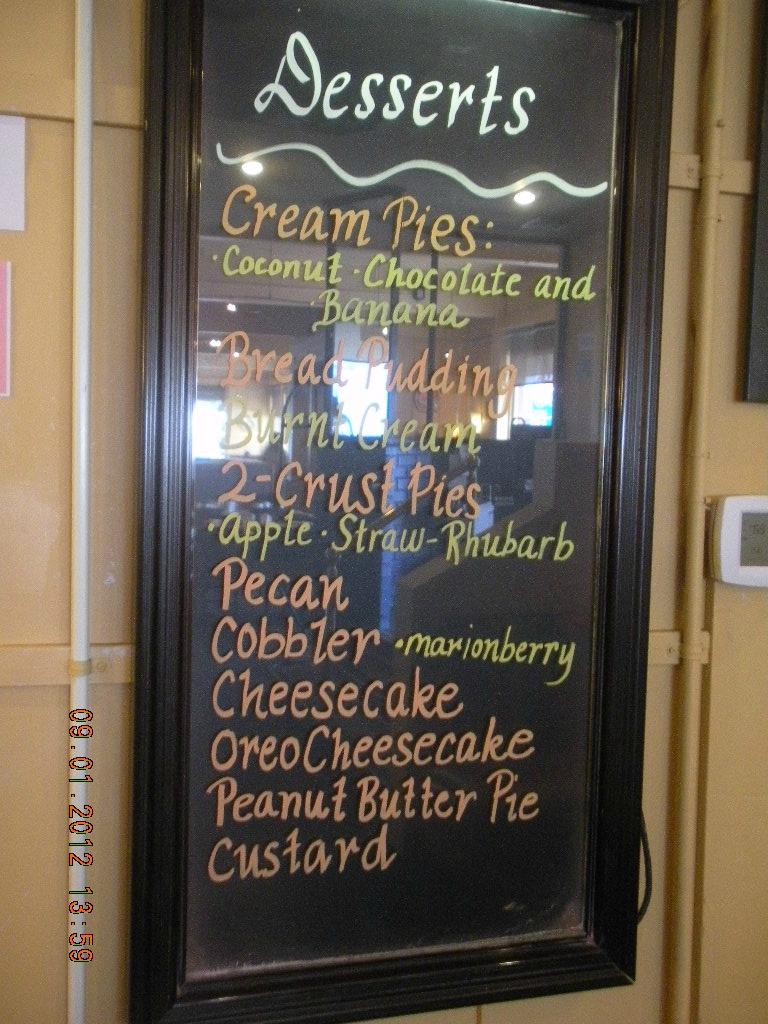 Desserts
Cream Pies:
·Coconut·Chocolate and
Banana
Bread Pudding
Burnt Cream
2-Crust Pies
·apple·Straw-Rhubarb
Pecan
Cobbler ·marionberry
Cheesecake
Oreo Cheesecake
Peanut Butter Pie
Custard
09.01.2012 13:59